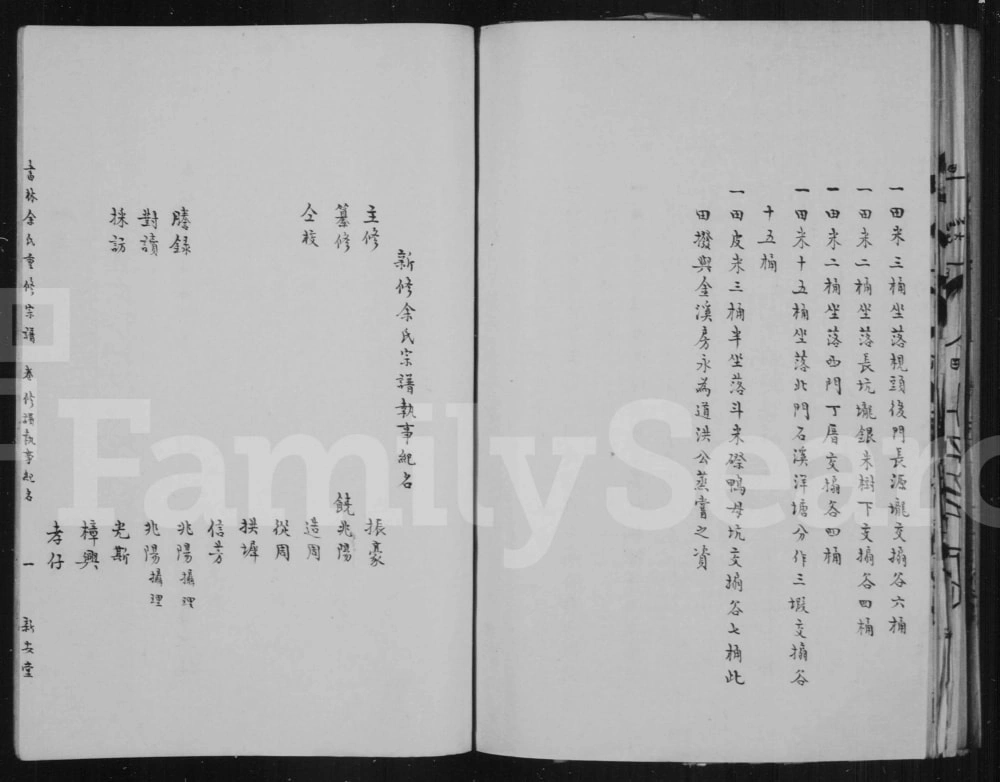 一田米三桶坐落梘頭後門長源壠交搦谷六桶
一田米二桶坐落長坑壠銀朱樹下交搦谷四桶
一田米二桶坐落西門丁厝交搦谷四桶
一田米十五桶坐落北門石溪洋塘分作三塅交搦谷
十五桶
一田皮米三桶半坐落斗米磜鴨母坑交搦谷七桶此
田撥與金溪房永為道洪公蒸嘗之資
新修余氏宗譜執事紀名
主修 振豪
纂修 饒兆陽
造周
仝校 從周
拱墀
信芳
謄錄 兆陽攝理
對讀 兆陽攝理
採訪 光斯
樟興
孝仔
書林余氏重修宗譜 卷 修譜執事紀名 一 新安堂
FamilySearch